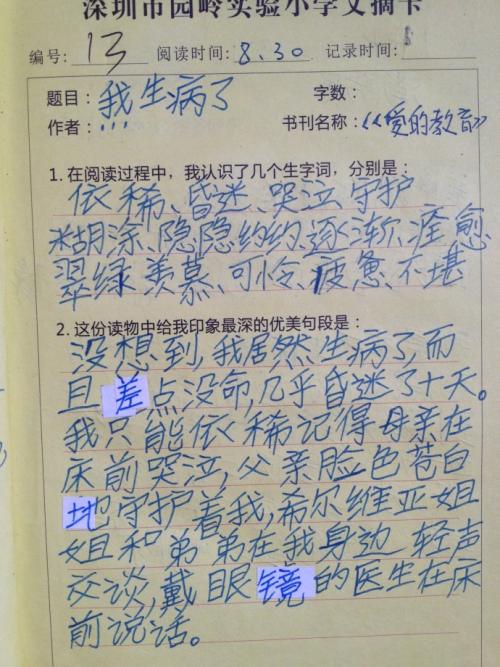 深圳市园岭实验小学文摘卡
编号: 13 阅读时间: 8.30 记录时间:
题目: 我生病了 字数:
作者: ... 书刊名称: 《爱的教育》
1. 在阅读过程中，我认识了几个生字词，分别是:
依稀、昏迷、哭泣、守护
糊涂、隐隐约约、逐渐、痊愈、
翠绿、羡慕、可怜、疲惫、不堪
2. 这份读物中给我印象最深的优美句段是:
没想到,我居然生病了,而
且差点没命,几乎昏迷了十天。
我只能依稀记得母亲在
床前哭泣,父亲脸色苍白
地守护着我,希尔维亚姐
姐和弟弟在我身边轻声
交谈,戴眼镜的医生在床
前说话。